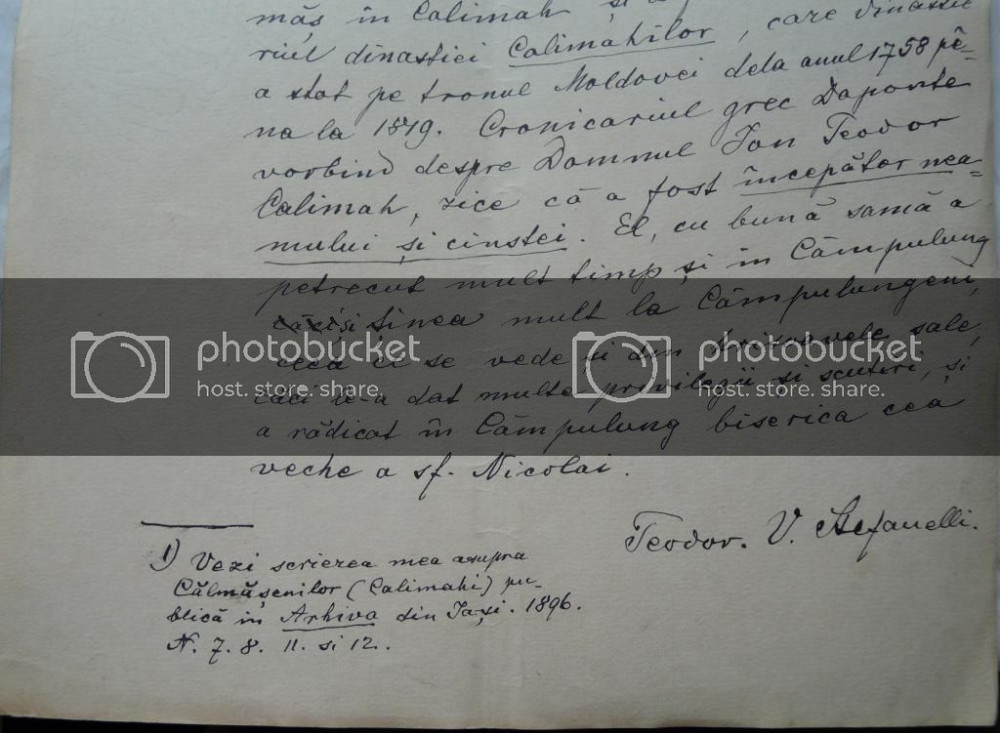 măș în Calimah și a
riul dinastiei Calimahilor, care dinastie
a stat pe tronul Moldovei dela anul 1758 pê=
na la 1819. Cronicariul grec Daponte
vorbind despre Domnul Ion Teodor
Calimah, zice că a fost începător nea=
mului și cinstei. El, cu bună samă a
petrecut mult timp și în Câmpulung
și ținea mult la Câmpulungeni,
ceea ci se vede și din hrisoavele sale,
căci le-a dat multe privilegii și scutiri, și
a rădicat în Câmpulung biserica cea
veche a sf. Nicolai.
Teodor. V. Stefanelli.
1) Vezi scrierea mea asupra
Călmășenilor (Calimahi) pu-
blică in Arhiva din Iași. 1896.
N. 7. 8. 11. si 12.
photobucket
host. store. share.
photobucket
host. store. share.